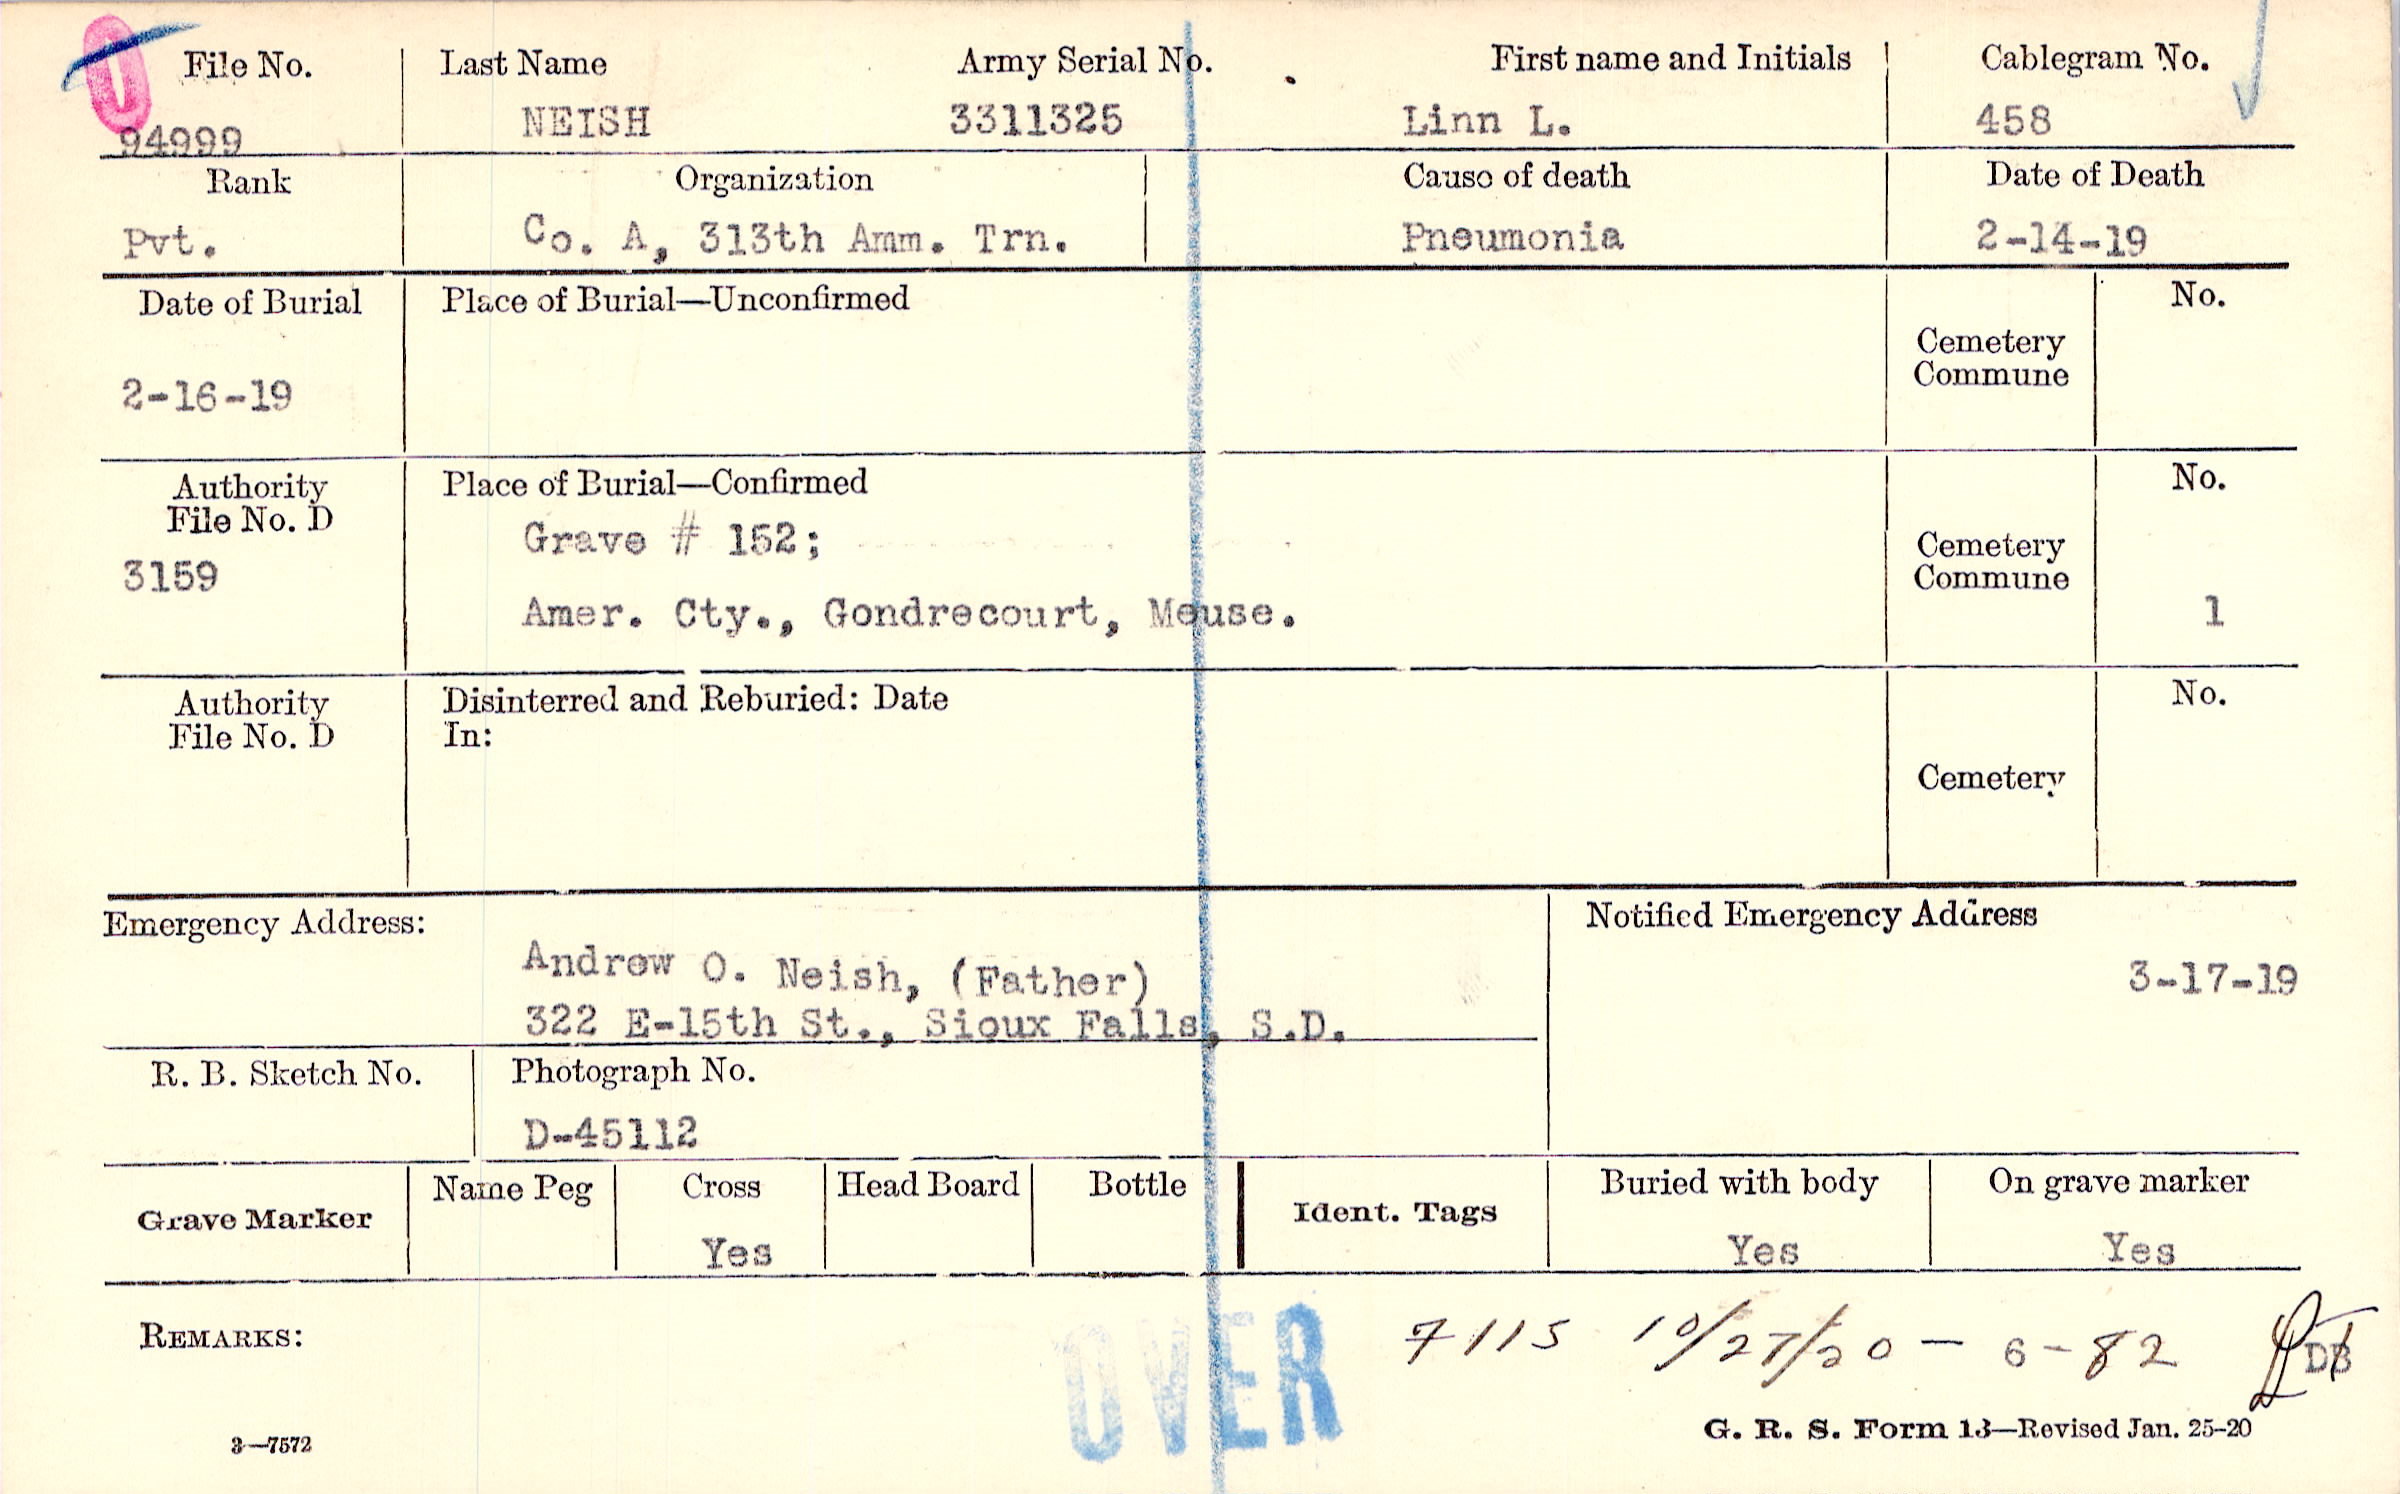 File No. Last Name Army Serial No. First name and Initials Cablegram No.
94999 NEISH 3311325 Linn L. 458
Rank Organization Cause of death Date of Death
Pvt. Co. A, 313th Amm. Trn. Pneumonia 2-14-19
Date of Burial Place of Burial—Unconfirmed No.
Cemetery
Commune
2-16-19
Authority Place of Burial—Confirmed No.
File No. D
Grave # 152;
Cemetery
3159 Commune
Amer. Cty., Gondrecourt, Meuse. 1
Authority Disinterred and Reburied: Date No.
File No. D In:
Cemetery
Emergency Address: Notified Emergency Address
Andrew O. Neish, (Father) 3-17-19
322 E-15th St., Sioux Falls, S.D.
R. B. Sketch No. Photograph No.
D-45112
Grave Marker Name Peg Cross Head Board Bottle Ident. Tags Buried with body On grave marker
Yes Yes Yes
REMARKS: OVER 7115 10/27/20 - 6-82 DB
3—7572 G. R. S. Form 13—Revised Jan. 25-20